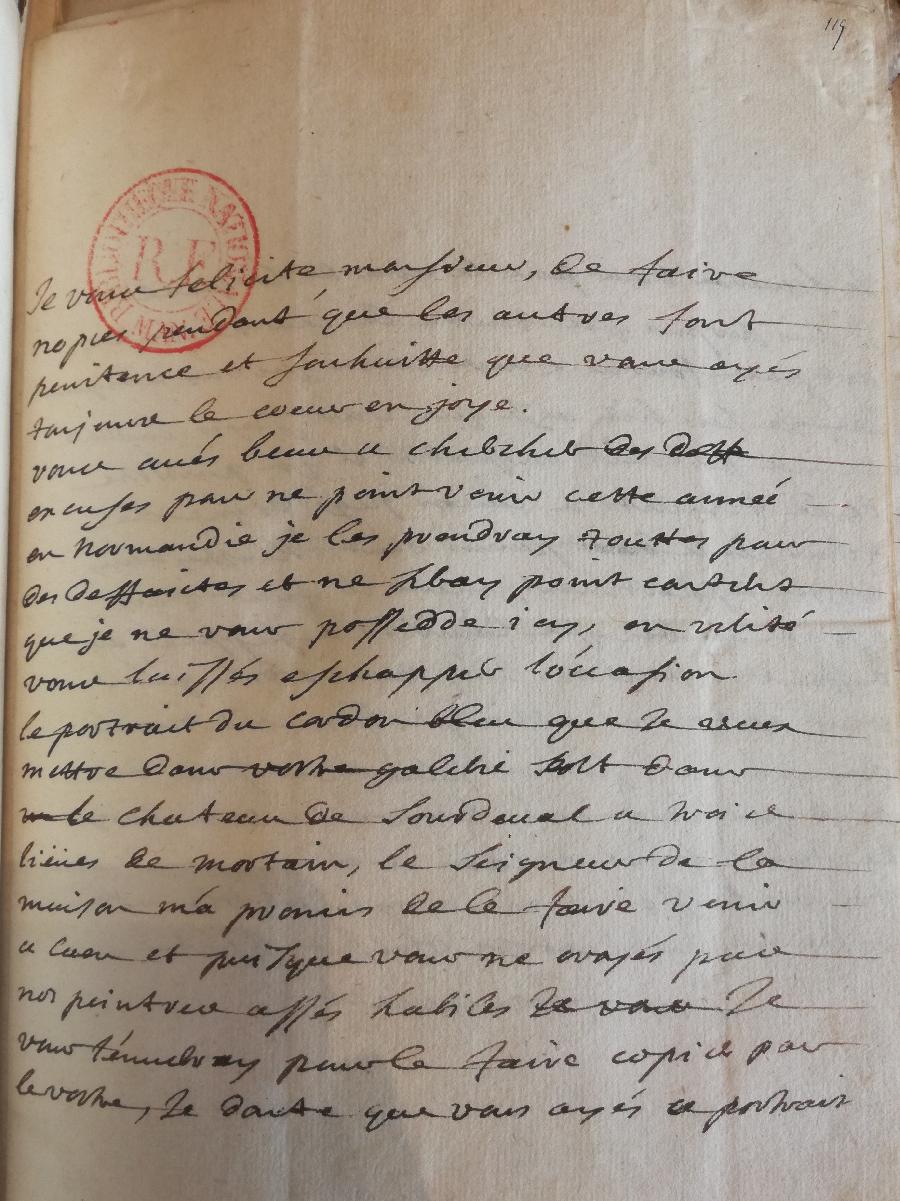 119
BIBLIOTHEQUE NATIONALE
R F
Je vous felicite monsieur, de faire
nopces pendant que les autres font
penitence et souhaitte que vous ayés
toujours le coeur en joye.
vous avés beau a chercher des deff
excuses pour ne point venir cette année
en Normandie je les prendray touttes pour
des deffaictes et ne seray point content
que je ne vous possedde icy, en verité
vous laissés eschapper l'occasion
le portrait du cordon bleu que Je veux
mettre dans vostre galerie est dans
le chateau de Sourdeval a trois
lieües de mortain, le Seigneur de la
maison m'a promis de le faire venir
a Caen et puisque vous ne croyés pas
nos peintres assés habiles Je vous Je
vous l'envoieray pour le faire copier par
le vostre, Je doute que vous ayés ce portrait